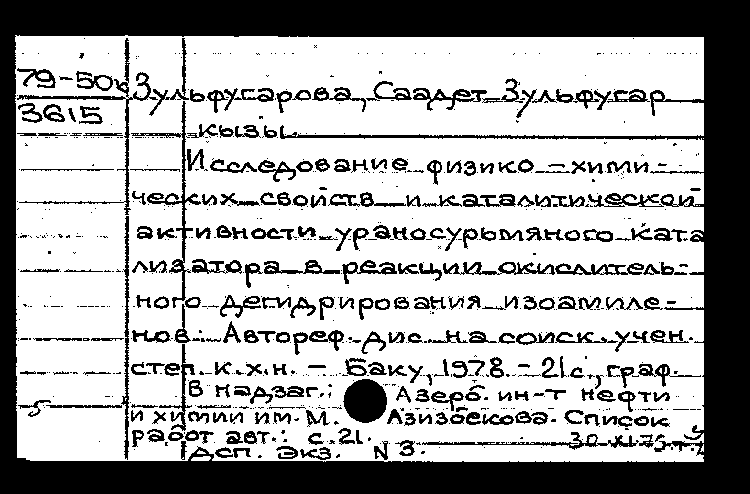 79-50к Зульфугарова, Саадет Зульфугар
3615 кызы.
Исследование физико-хими-
ческих свойств и каталитической
активности ураносурьмяного ката
лизатора в реакции окислитель-
ного дегидрирования изоамиле-
нов: Автореф. дис на соиск. учен.
степ. к.х.н. - Баку, 1978. - 21с., граф.
В надзаг.: Азерб. ин-т нефти
5 и химии им. М. Азизбекова. Список
работ авт.: с.21.
ДСП. Экз. N 3.